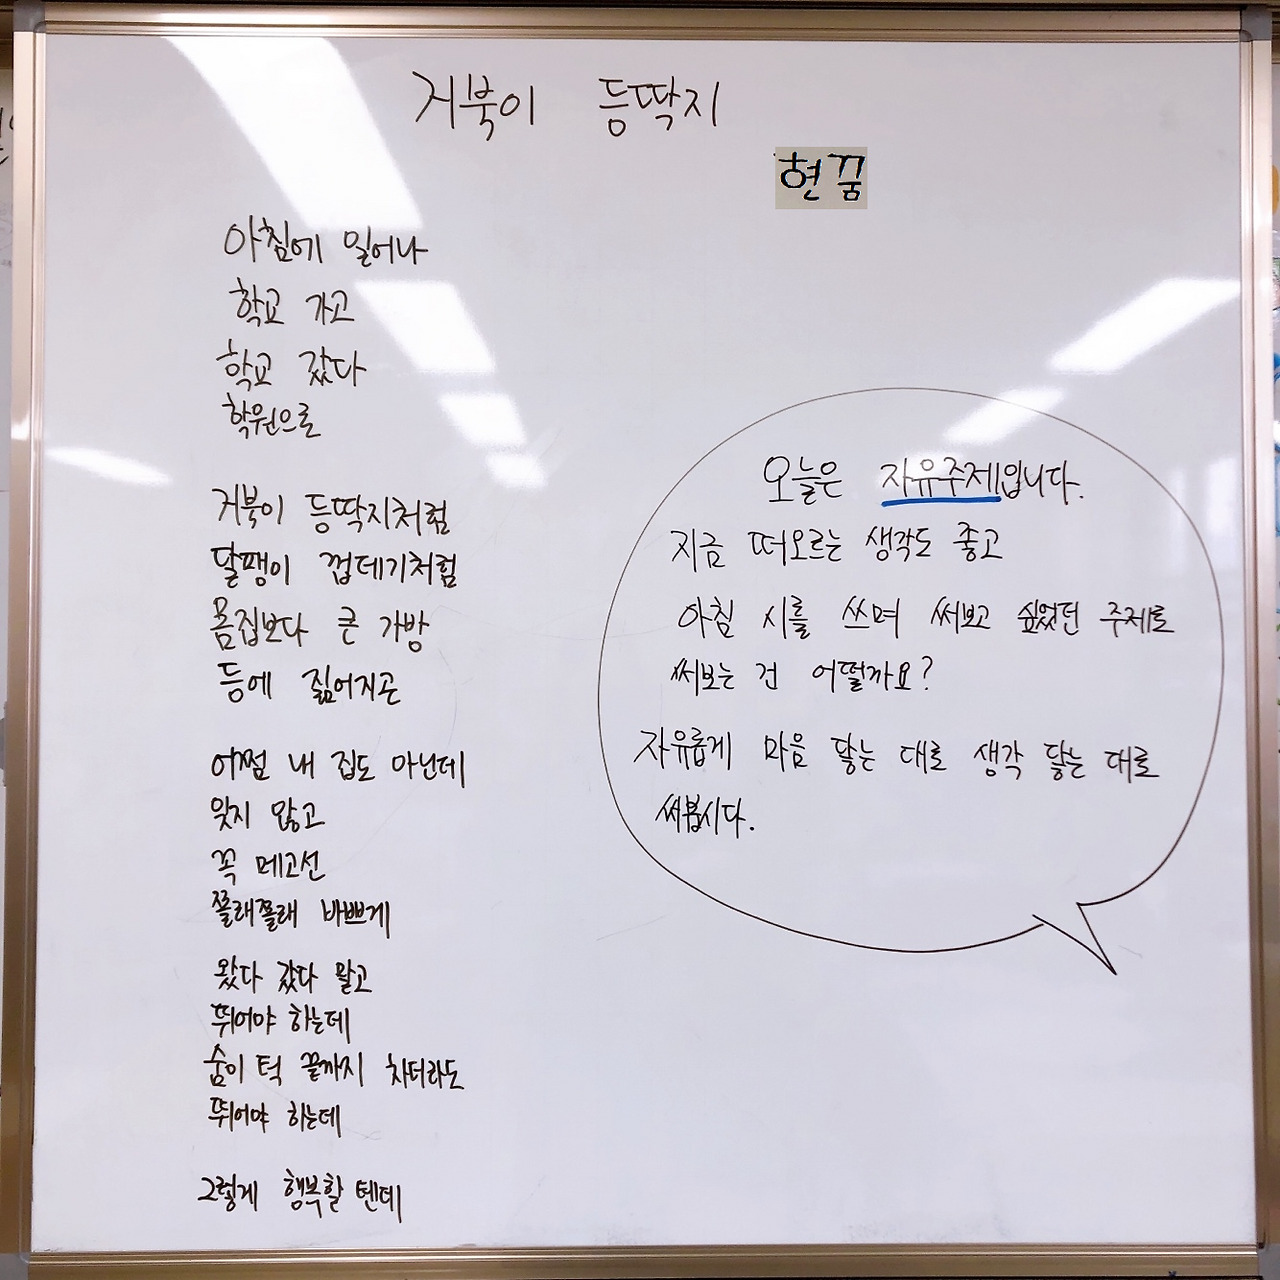 거북이 등딱지
현꿈
아침에 일어나
학교 가고
학교 갔다
학원으로
거북이 등딱지처럼
달팽이 껍데기처럼
몸집보다 큰 가방
등에 짊어지곤
어쩜 내 집도 아닌데
잊지 않고
꼭 메고선
쫄래쫄래 바쁘게
왔다 갔다 말고
뛰어야 하는데
숨이 턱 끝까지 차더라도
뛰어야 하는데
그렇게 행복할 텐데
오늘은 자유주제입니다.
지금 떠오르는 생각도 좋고
아침 시를 쓰며 써보고 싶었던 주제로
써보는 건 어떨까요?
자유롭게 마음 닿는 대로 생각 닿는 대로
써봅시다.